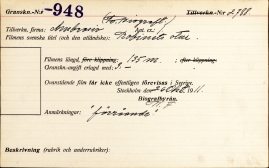 Granskn.-N:r -948 Tillverkn.-Nr 2988
Tillverkn. firma: Ambrosio
Filmens svenska titel (och den utländska): Robinets
Filmens längd, före klippning: 135 m. efter klippning:
Granskn.-avgift erlagd med: 3-
Ovanstående film får icke offentligen förevisas i Sverige.
Stockholm den 1911.
Biografbyrån.
Anmärkningar: "förråande"
Beskrivning (rubrik och underrubriker):